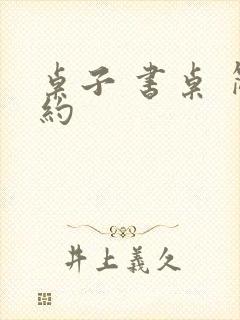 桌子 書桌
約
井上義久